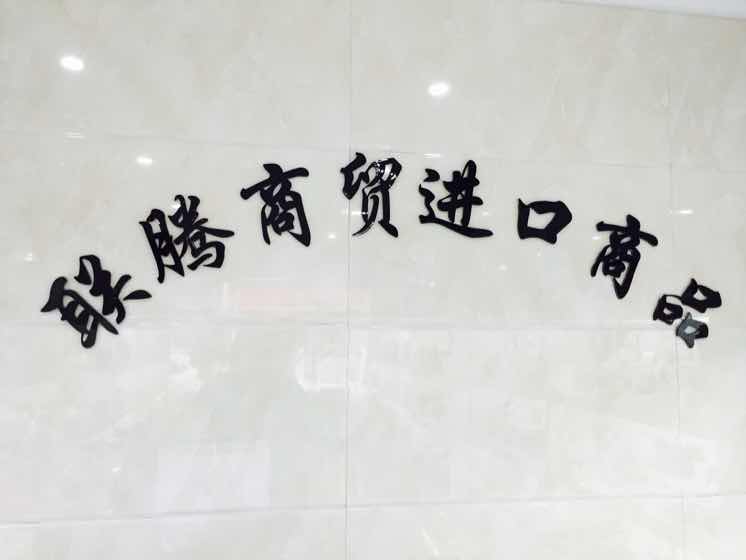 联腾商贸进口商品